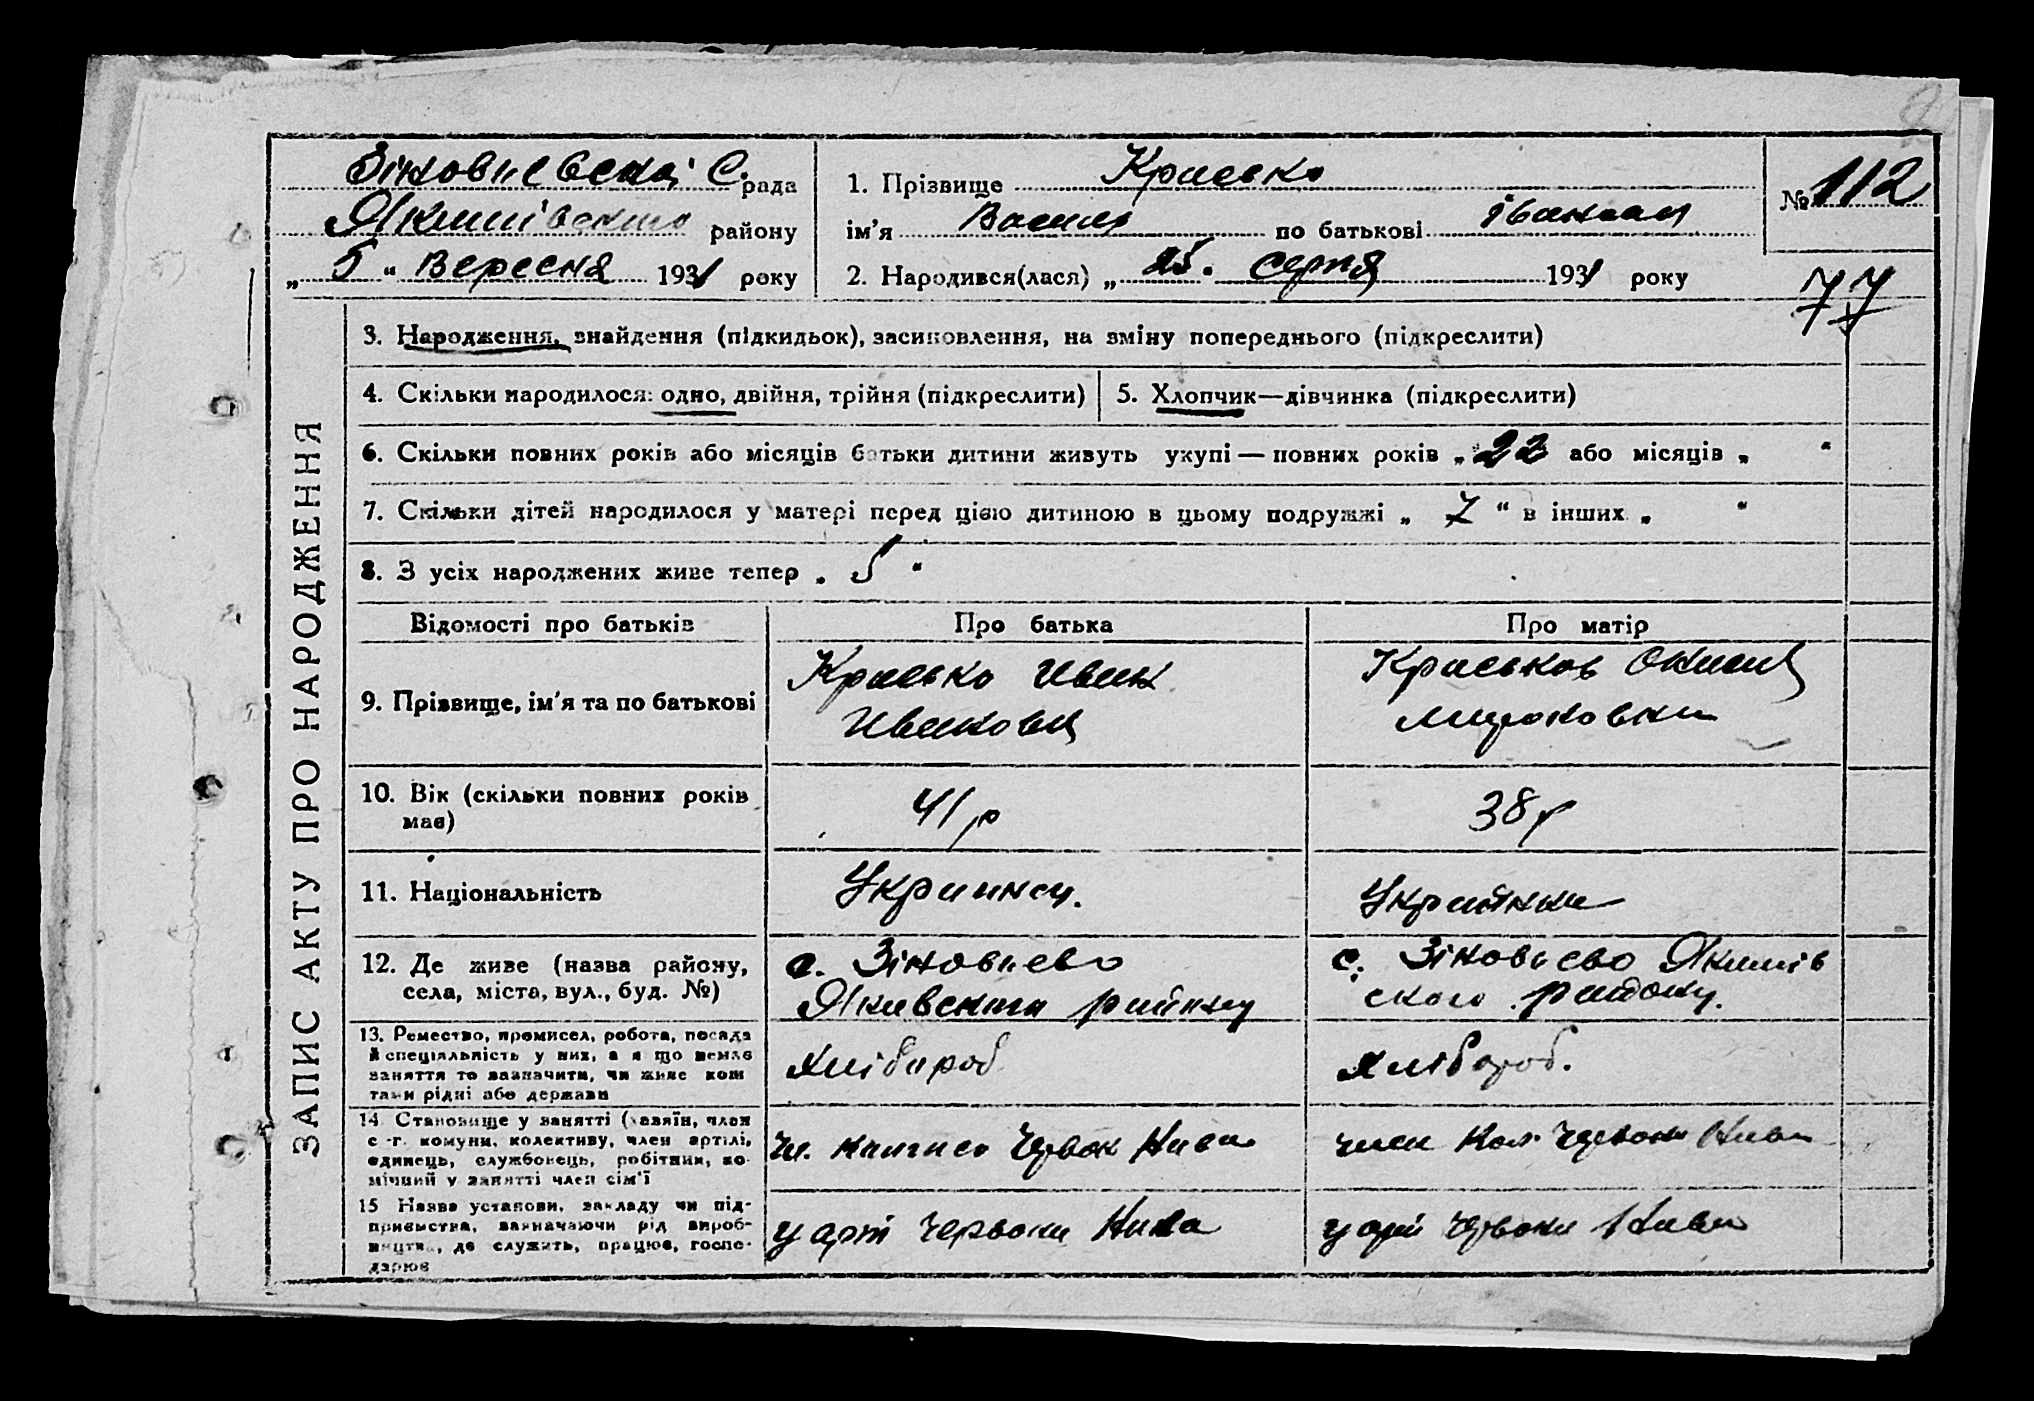 Зіновиевской С. рада
Якимівского району
„ 5 “ Вересня 1931 року
1. Прізвище Крисько
ім'я Василь по батькові Іванович
2. Народився(лася) „ 25. Серпя 1931 року
№ 112
77
ЗАПИС АКТУ ПРО НАРОДЖЕННЯ
3. Народження, знайдення (підкидьок), засиновлення, на зміну попереднього (підкреслити)
4. Скільки народилося: одно, двійня, трійня (підкреслити)
5. Хлопчик—дівчинка (підкреслити)
6. Скільки повних років або місяців батьки дитини живуть укупі — повних років „ 22 або місяців „ “
7. Скільки дітей народилося у матері перед цією дитиною в цьому подружжі „ 7 “ в інших „ “
8. З усіх народжених живе тепер „ 5 “
Відомості про батьків
Про батька
Про матір
9. Прізвище, ім'я та по батькові
Крисько Иван
Иванович
Криськов
10. Вік (скільки повних років
має)
41 р
38 р
11. Національність
Украинец.
Украинка
12. Де живе (назва району,
села, міста, вул., буд. №)
с. Зіновиево
району
с. Зіновьево Якимів
ского району.
13. Ремество, промисел, робота, посада
й спеціяльність у них, а я що немає
заняття то зазначити, чи живе кош
тами рідні або держави
хлібороб
хлібороб.
14. Становище у занятті (хазяїн, член
с.-г. комуни, колективу, член артілі,
одинець, службовець, робітник, по-
мічний у занятті член сім'ї
Чл. Червон Нива
член Кол. Червона Нива
15 Назва установи, закладу чи під-
приємства, зазначаючи рід вироб-
ництва, де служить, працює, госпо-
дарює
у арт Червона Нива
у арт Червона Нива